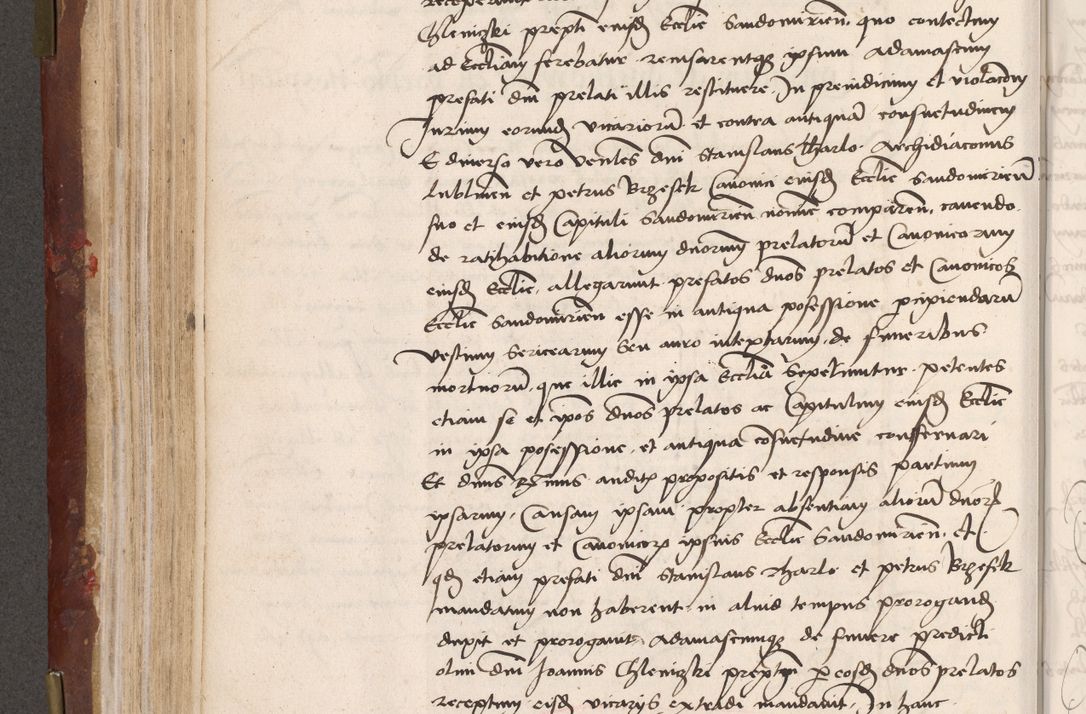 Chlenizki prepti eiusd Ecclie Sandomirien. quo contectum
ad Eccliam ferebatur. renisarentqz ipsum Adamascum
prefati dni prelati illis restituere. In preiudicium et violacom
Iurium eorund vicariorum et contra antiquam consuetudinem
E diuerso vero venles dni Stanislaus Tharlo Archidiaconus
Lublinen et petrus Brzesek Canonici eiusd Ecclie Sandomirien
suo et eiusd Capituli Sandomirien nomine comparen. cauendo
de ratihabitione aliorum dnorum prelatorum et Canonicorum
eiusd Ecclie. allegarunt prefatos dnos prelatos et Canonicos
Ecclie Sandomirien esse in antiqua possessione percipiendarum
vestium sericearum seu auro intextarum, de funeribus
mortuorum, que illic in ipsa Ecclia sepeliuntur. petentes
etiam se et ipos dnos prelatos ac Capitulum eiusd Ecclie
in ipsa possessione et antiqua consuetudine conseruari
Et dnus Rmus auditis propositis et responsis partium
ipsarum, Causam ipsam propter absentiam aliorum dnorum
prelatorum et Canonicorum ipsius Ecclie Sandomirien. Et
qd etiam prefati dni Stanislaus Tharlo et petrus Brzesek
mandatum non haberent. in aliud tempus prorogand
duxit et prorogauit Adamascumqz de funere predicti
olim dni Joannis Chlenizki prepti per eosd dnos prelatos
receptum eisd vicarys extradi mandauit. In hanc